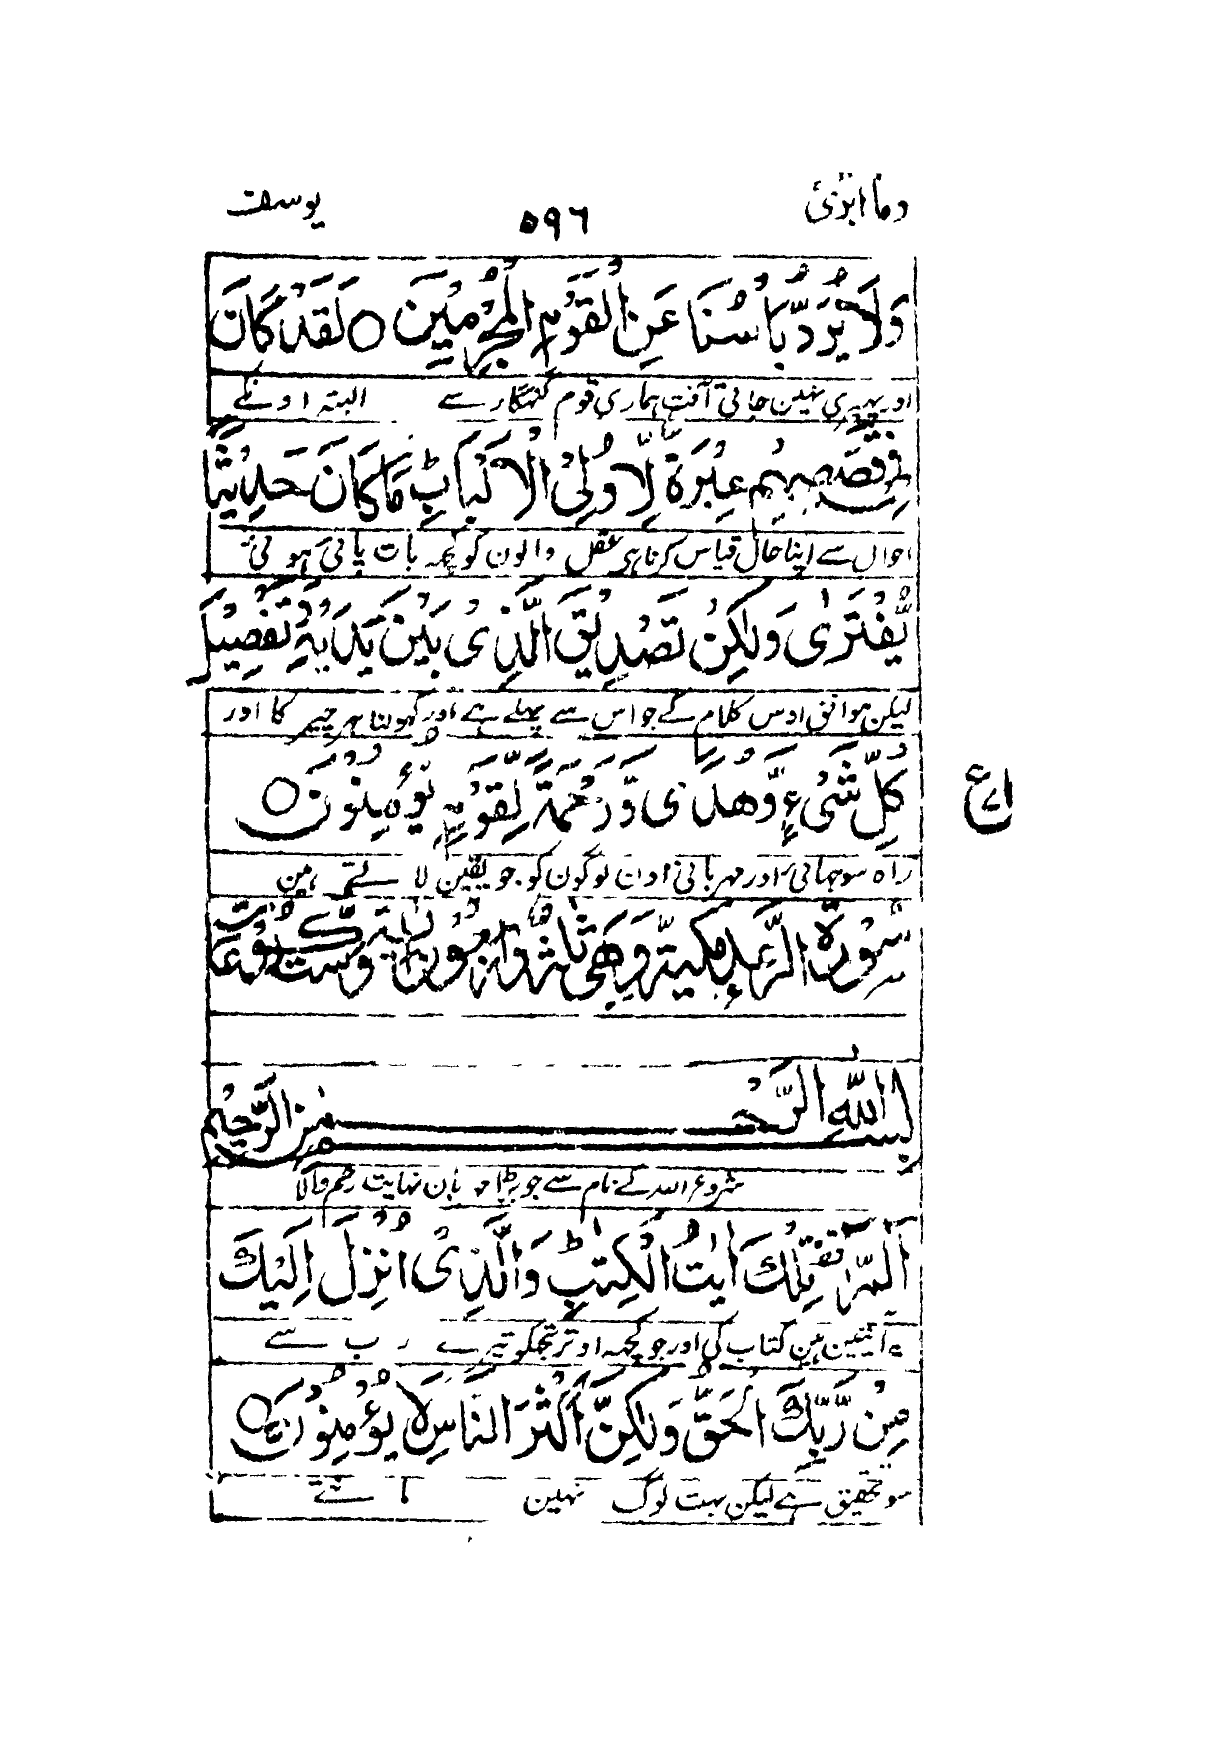 وما ابرئ ٥٩٦ یوسف
وَلَا يُرَدُّ بَأْسُنَا عَنِ الْقَوْمِ الْمُجْرِمِيْنَ ○ لَقَدْ كَانَ
اور پھیری نہین جاتی آفت ہماری قوم گنہگار سے البتہ اونکے
فِيْ قَصَصِهِمْ عِبْرَةٌ لِّاُولِى الْاَلْبَابِ ؕ مَا كَانَ حَدِيْثًا
احوال سے اپنا حال قیاس کرنا ہی عقل والون کو کچہہ بات بنائی ہوئی
يُّفْتَرٰى وَلٰكِنْ تَصْدِيْقَ الَّذِىْ بَيْنَ يَدَيْهِ وَتَفْصِيْلَ
لیکن موافق اوس کلام کے جو اس سے پہلے ہے اور کہولنا ہر چیز کا اور
كُلِّ شَىْءٍ وَّهُدًى وَّرَحْمَةً لِّقَوْمٍ يُّؤْمِنُوْنَ ○
ع
راہ سوجہانی اور مہربانی اون لوگون کو جو یقین لاتے ہین
سُوْرَةُ الرَّعْدِ مَكِّيَّةٌ وَّهِىَ ثَلٰثٌ وَّاَرْبَعُوْنَ اٰيَةً وَّسِتُّ رُكُوْعَاتٍ
بِسْمِ اللّٰهِ الرَّحْمٰنِ الرَّحِيْمِ
شروع اللہ کے نام سے جو بڑا مہربان نہایت رحم والا
الٓمّٓرٰ ۚ تِلْكَ اٰيٰتُ الْكِتٰبِ ؕ وَالَّذِىْ اُنْزِلَ اِلَيْكَ
یہ آیتین ہین کتاب کی اور جو کچہہ اوترا تجکو تیرے رب سے
مِنْ رَّبِّكَ الْحَقُّ وَلٰكِنَّ اَكْثَرَ النَّاسِ لَا يُؤْمِنُوْنَ ○
سو تحقیق ہے لیکن بہت لوگ نہین مانتے